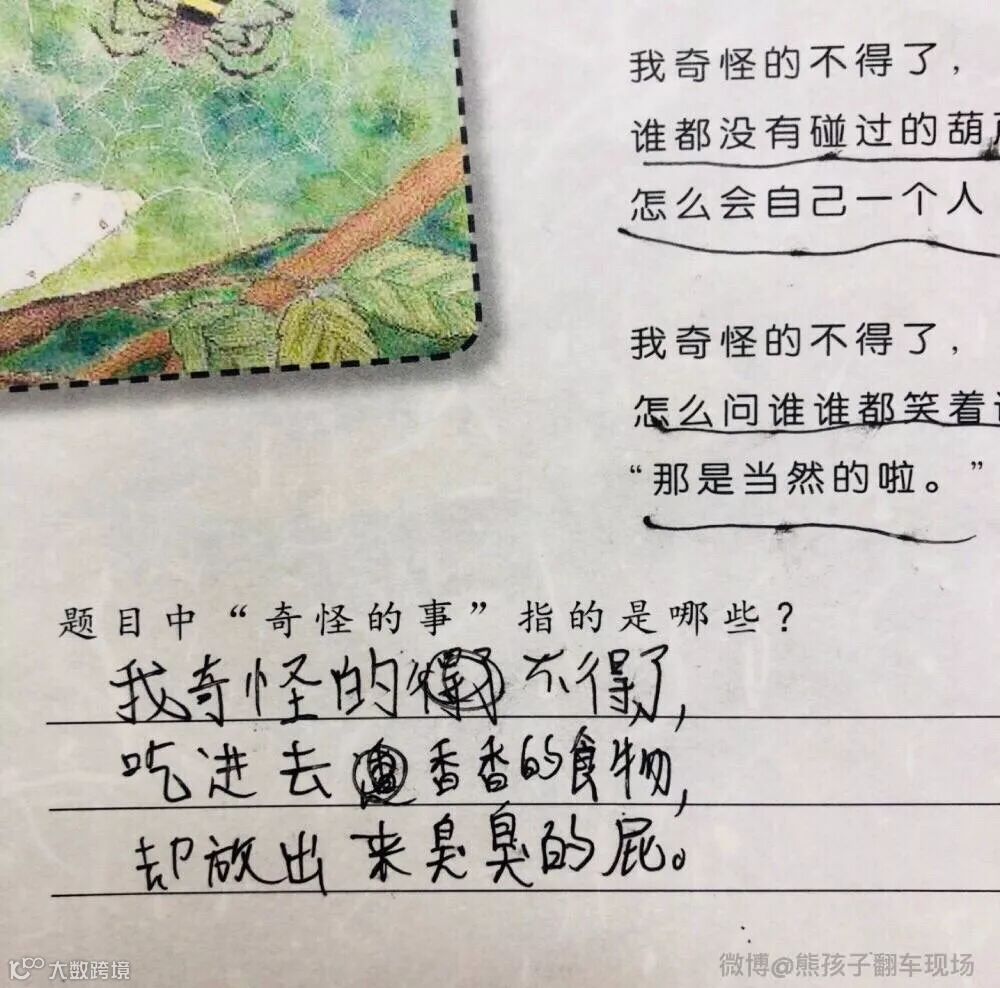 我奇怪的不得了，
谁都没有碰过的葫
怎么会自己一个人
我奇怪的不得了，
怎么问谁谁都笑着
“那是当然的啦。”
题目中“奇怪的事”指的是哪些？
我奇怪的不得了，
吃进去香香的食物，
却放出来臭臭的屁。
大数跨境
微博@熊孩子翻车现场